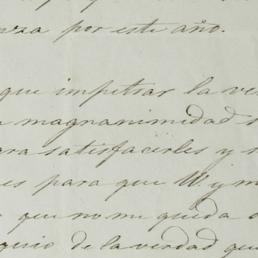 nza por este año.
que impetrar la ve
magnanimidad
ara satisfacerles y
es para que V. y m
que no me queda
quio de la verdad que